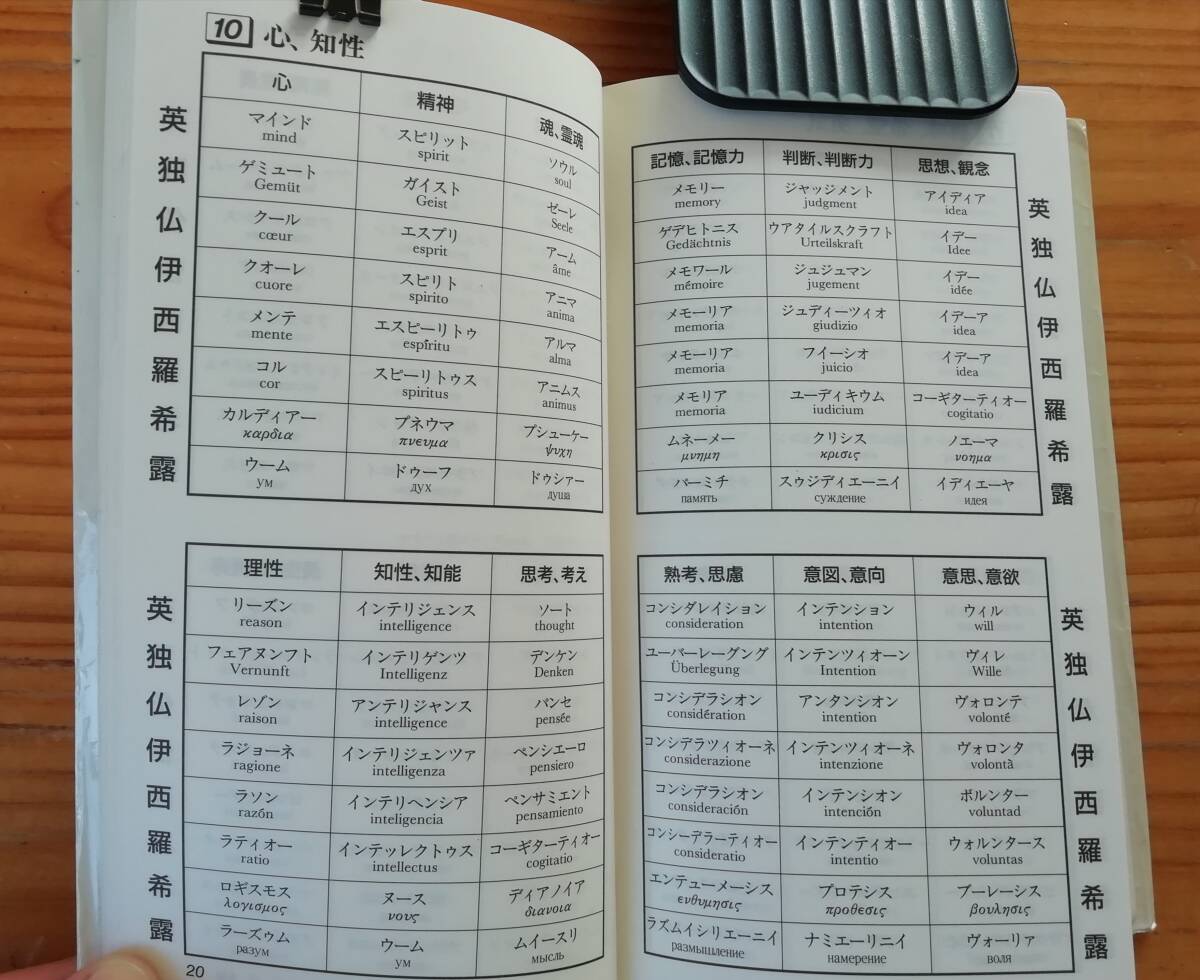 10 心、知性
心 精神 魂、霊魂
英 マインド スピリット ソウル
mind spirit soul
独 ゲミュート ガイスト ゼーレ
Gemüt Geist Seele
仏 クール エスプリ アーム
cœur esprit âme
伊 クオーレ スピリト アニマ
cuore spirito anima
西 メンテ エスピーリトゥ アルマ
mente espíritu alma
羅 コル スピーリトゥス アニムス
cor spiritus animus
希 カルディアー プネウマ プシューケー
καρδια πνευμα ψυχη
露 ウーム ドゥーフ ドゥシァー
ум дух душа
理性 知性、知能 思考、考え
英 リーズン インテリジェンス ソート
reason intelligence thought
独 フェアヌンフト インテリゲンツ デンケン
Vernunft Intelligenz Denken
仏 レゾン アンテリジャンス パンセ
raison intelligence pensée
伊 ラジョーネ インテリジェンツァ ペンシエーロ
ragione intelligenza pensiero
西 ラソン インテリヘンシア ペンサミエント
razón inteligencia pensamiento
羅 ラティオー インテッレクトゥス コーギターティオー
ratio intellectus cogitatio
希 ロギスモス ヌース ディアノイア
λογισμος νους διανοια
露 ラーズゥム ウーム ムイースリ
разум ум мысль
20
記憶、記憶力 判断、判断力 思想、観念
メモリー ジャッジメント アイディア 英
memory judgment idea
ゲデヒトニス ウアタイルスクラフト イデー 独
Gedächtnis Urteilskraft Idee
メモワール ジュジュマン イデー 仏
mémoire jugement idée
メモーリア ジュディーツィオ イデーア 伊
memoria giudizio idea
メモーリア フイーシオ イデーア 西
memoria juicio idea
メモリア ユーディキウム コーギターティオー 羅
memoria iudicium cogitatio
ムネーメー クリシス ノエーマ 希
μνημη κρισις νοημα
パーミチ スゥジディエーニイ イディエーヤ 露
память суждение идея
熟考、思慮 意図、意向 意思、意欲
コンシダレイション インテンション ウィル 英
consideration intention will
ユーバーレーグング インテンツィオーン ヴィレ 独
Überlegung Intention Wille
コンシデラシオン アンタンシオン ヴォロンテ 仏
considération intention volonté
コンシデラツィオーネ インテンツィオーネ ヴォロンタ 伊
considerazione intenzione volontà
コンシデラシオン インテンシオン ボルンター 西
consideración intención voluntad
コンシーデラーティオー インテンティオー ウォルンタース 羅
consideratio intentio voluntas
エンテューメーシス プロテシス ブーレーシス 希
ενθυμησις προθεσις βουλησις
ラズムイシリエーニイ ナミエーリニイ ヴォーリァ 露
размышление намерение воля